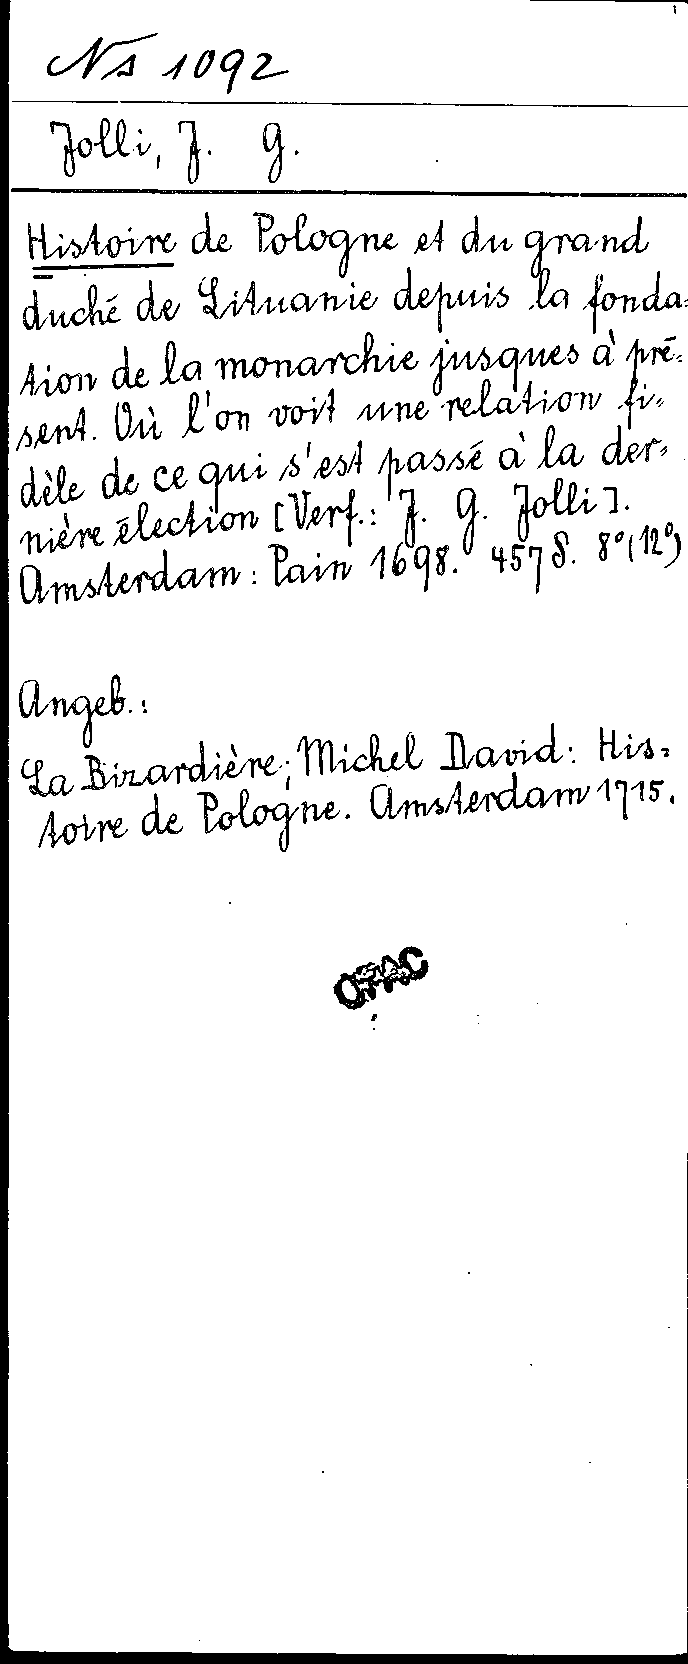 Ns 1092
Jolli, J. G.
Histoire de Pologne et du grand
duché de Lituanie depuis la fonda-
tion de la monarchie jusques à pré-
sent. Où l'on voit une relation fi-
dèle de ce qui s'est passé à la der-
nière élection [Verf.: J. G. Jolli].
Amsterdam: Pain 1698. 457 S. 8°(12°)
Angeb.:
La Bizardière, Michel David: His-
toire de Pologne. Amsterdam 1715.
OPAC